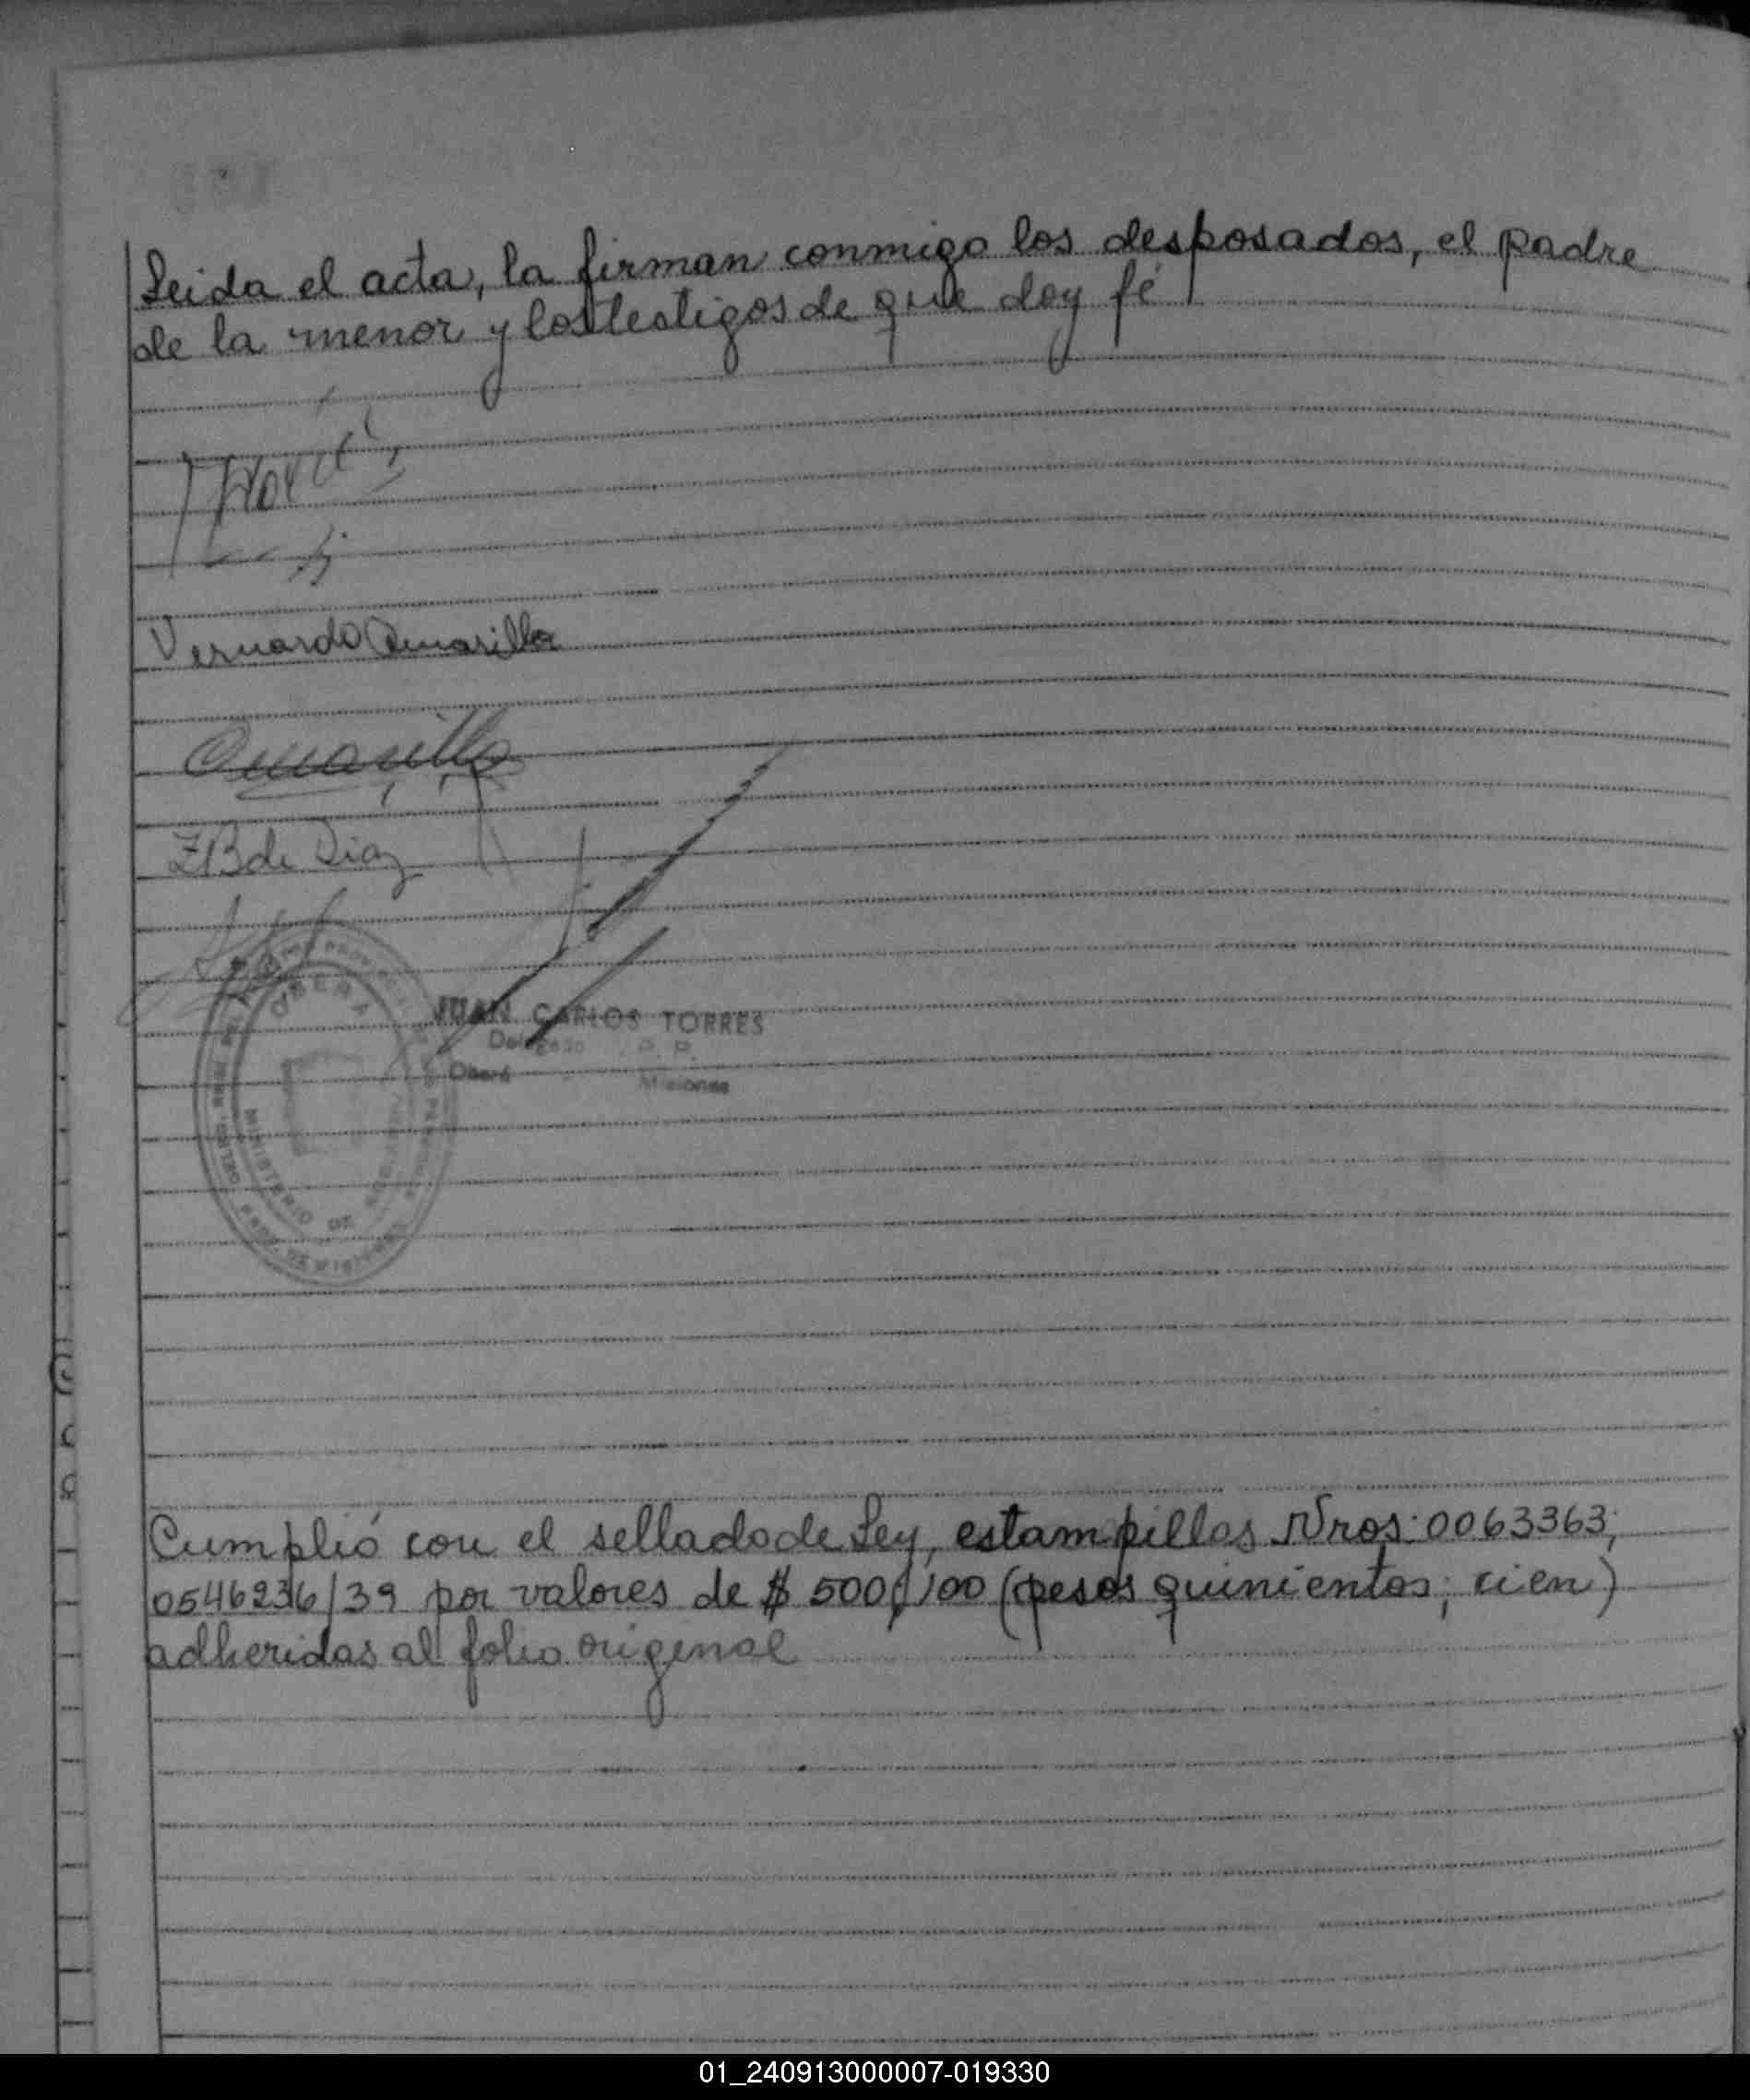 Leida el acta, la firman conmigo los desposados, el padre
de la menor y los testigos de que doy fé
Vernardo Amarilla
Amarilla
ZB de Diaz
OBERA
JUAN CARLOS TORRES
Delegado R. P.
Oberá Misiones
MINISTERIO DE
PROV. DE MISIONES
Cumplió con el sellado de Ley, estampillas Nros: 0063363;
0546236/39 por valores de $ 500; 100 (pesos quinientos; cien)
adheridas al folio original
01_240913000007-019330